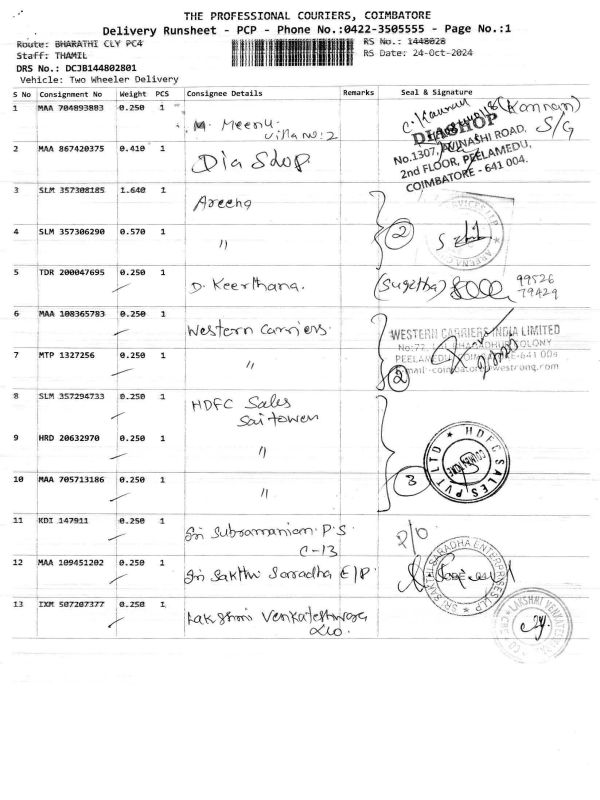 THE PROFESSIONAL COURIERS, COIMBATORE
Delivery Runsheet - PCP - Phone No.:0422-3505555 - Page No.:1
Route: BHARATHI CLY PC4
RS No.: 1448028
Staff: THAMIL
RS Date: 24-Oct-2024
DRS No.: DCJB144802801
Vehicle: Two Wheeler Delivery
S No Consignment No Weight PCS Consignee Details Remarks Seal & Signature
1 MAA 704893883 0.250 1 M. Meenu
Villa No: 2
(Kannan)
S/G
2 MAA 867420375 0.410 1 Dia Shop
DIASHOP
No.1307, AVINASHI ROAD,
2nd FLOOR, PEELAMEDU,
COIMBATORE - 641 004.
3 SLM 357308185 1.640 1 Areena
4 SLM 357306290 0.570 1 "
2
5 TDR 200047695 0.250 1 D. Keerthana.
(Sugitha)
99526
79429
6 MAA 108365783 0.250 1 Western Carriers
WESTERN CARRIERS INDIA LIMITED
7 MTP 1327256 0.250 1 "
2
8 SLM 357294733 0.250 1 HDFC Sales
Sai towers
9 HRD 20632970 0.250 1 "
HDFC SALES PVT LTD
COIMBATORE
10 MAA 705713186 0.250 1 "
3
11 KDI 147911 0.250 1 Sri Subramaniam P.S.
C-13
P/O
12 MAA 109451202 0.250 1 Sri Sakthi Saradha E/P.
SRI SAKTHI SARADHA ENTERPRISES LLP
13 IXM 507207377 0.250 1 Lakshmi Venkateshwara
&co.